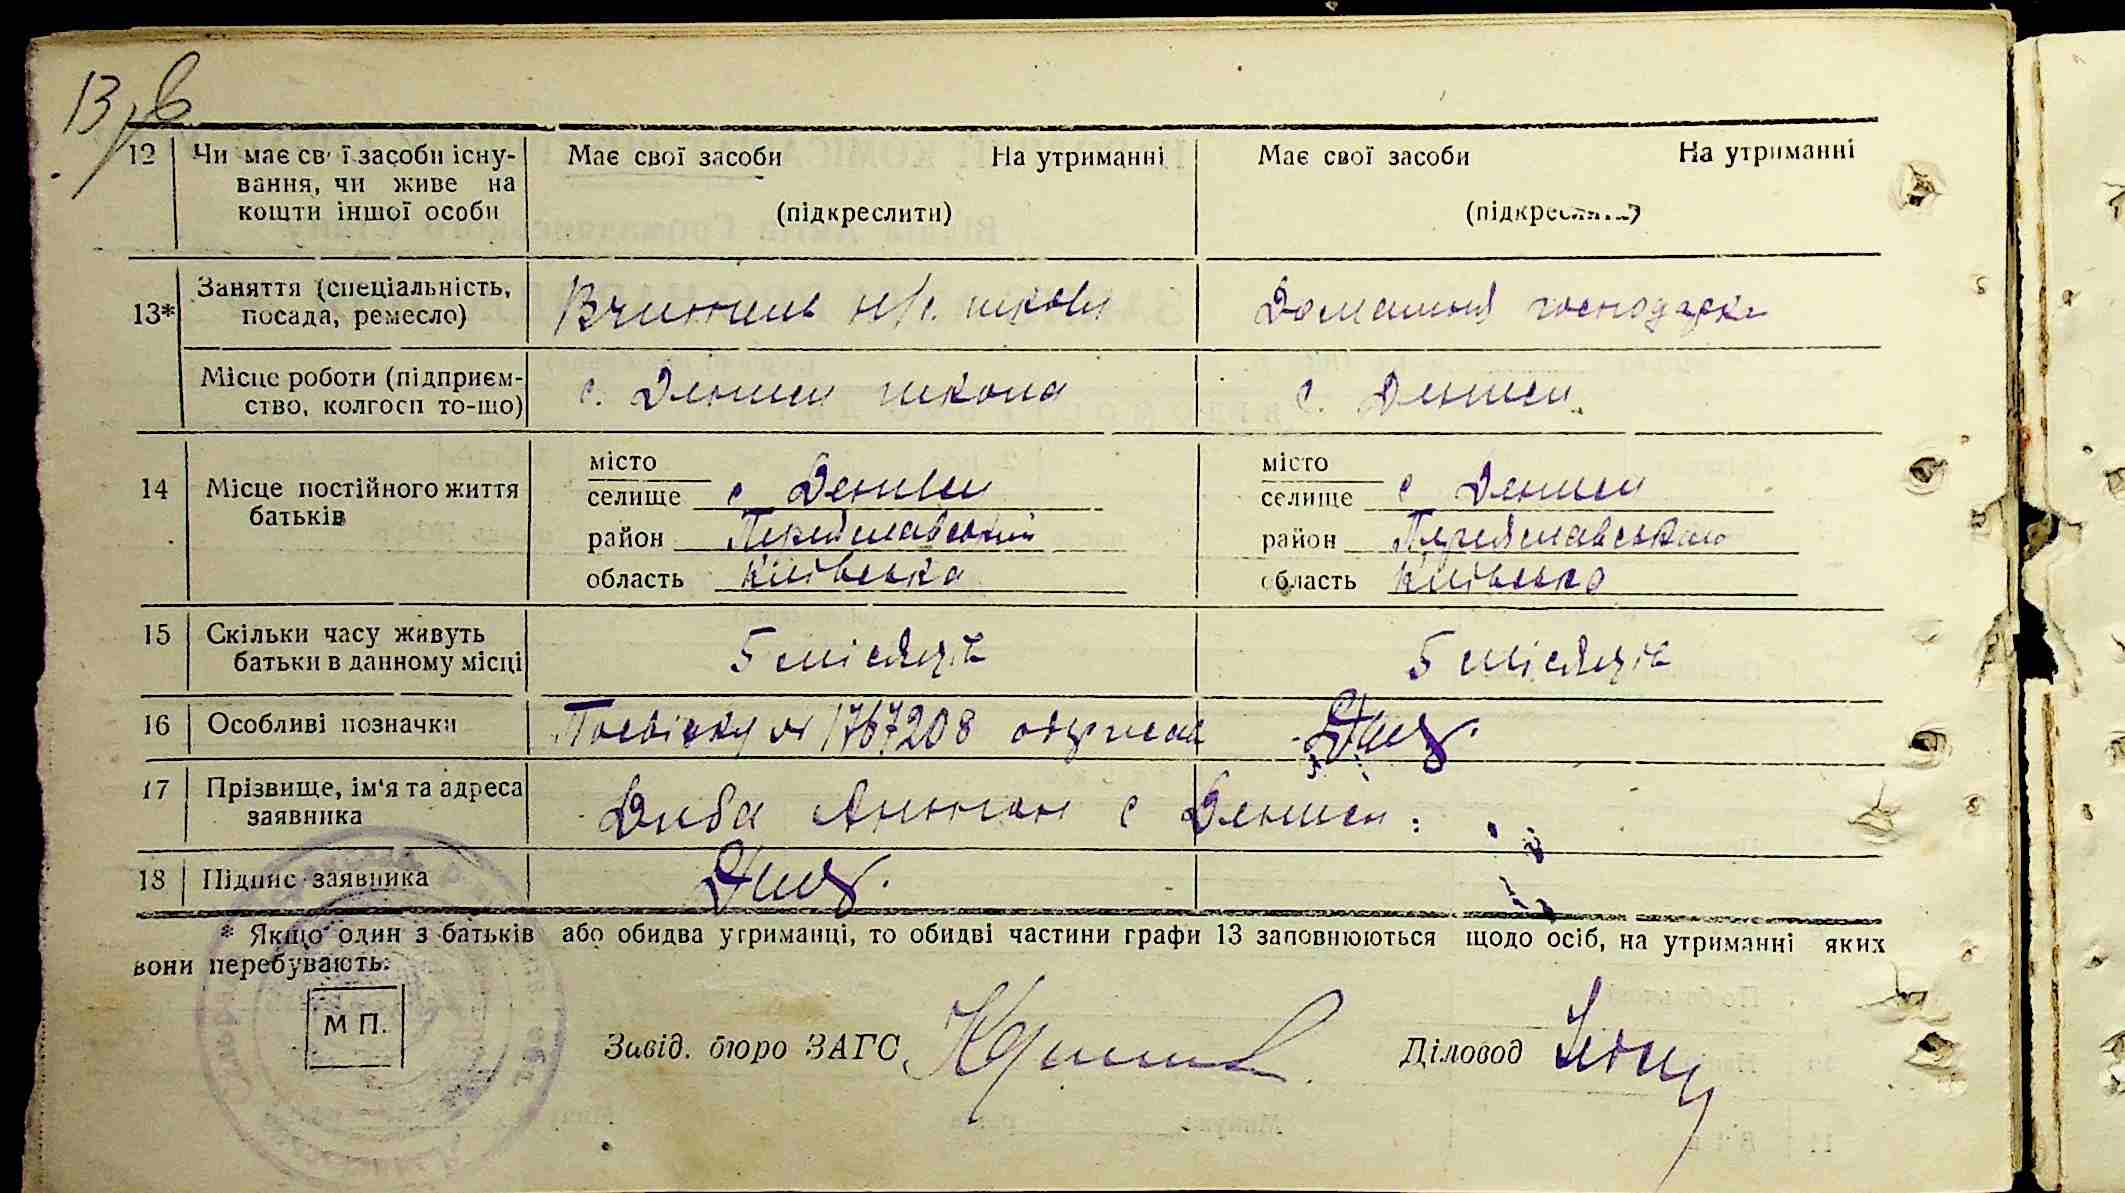 13 зв
12 Чи має свої засоби існу- Має свої засоби На утриманні Має свої засоби На утриманні
вання, чи живе на
кошти іншої особи (підкреслити) (підкреслити)
Заняття (спеціальність, Вчитель н/с. школи Домашня господарка
13* посада, ремесло)
Місце роботи (підприєм- с. Дениси школа с. Дениси
ство, колгосп то-що)
місто місто
14 Місце постійного життя селище с Дениси селище с Дениси
батьків
район Переяславський район Переяславського
область Київська область Київська
15 Скільки часу живуть 5 місяців 5 місяців
батьки в данному місці
16 Особливі позначки Посвідку № 1767208 одержав
17 Прізвище, ім'я та адреса Диба Антон с Дениси
заявника
18 Підпис заявника
* Якщо один з батьків або обидва утриманці, то обидві частини графи 13 заповнюються щодо осіб, на утриманні яких
вони перебувають.
М П.
Завід. бюро ЗАГС Діловод